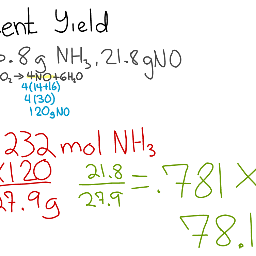 ent Yield
0.8g NH3, 21.8g NO
O2 → 4NO + 6H2O
4(14+16)
4(30)
120g NO
232 mol NH3
x120
27.9g
21.8
27.9
= .781 x
78.1